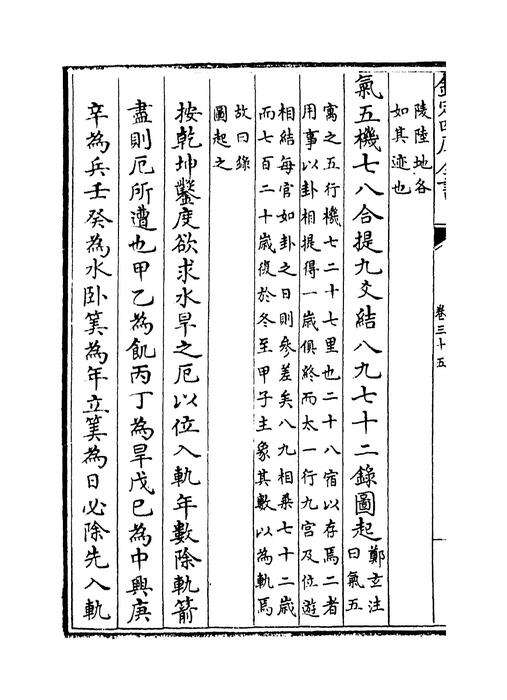 欽定四庫全書
卷三十五
陵陸地各
如其迹也
氣五機七八合提九爻結八九七十二錄圖起
鄭玄注
曰氣五
寓之五行機七二十七里也二十八宿以存焉二者
用事以卦相提得一歲俱終而太一行九宮及位遊
相結每官如卦之日則參差矣八九相乗七十二歲
而七百二十歲復於冬至甲子主象其數以為軌焉
故曰錄
圖起之
按乾坤鑿度欲求水旱之厄以位入軌年數除軌箭
盡則厄所遭也甲乙為飢丙丁為旱戊己為中興庚
辛為兵壬癸為水卧筭為年立筭為日必除先入軌